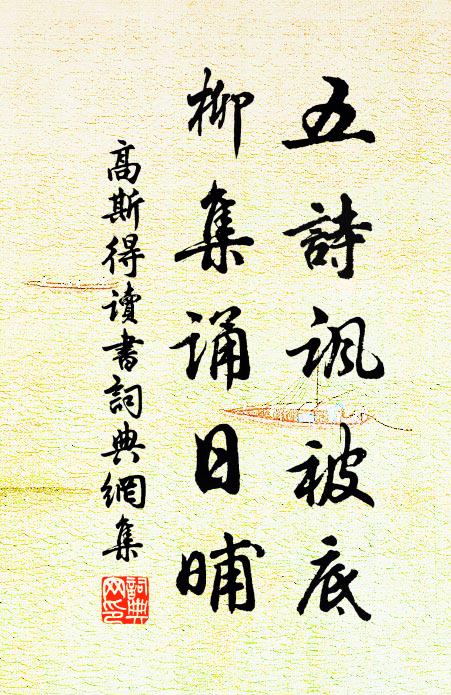 五詩諷被底
柳集誦日晡
高斯得讀書詞典網集
詞典网印